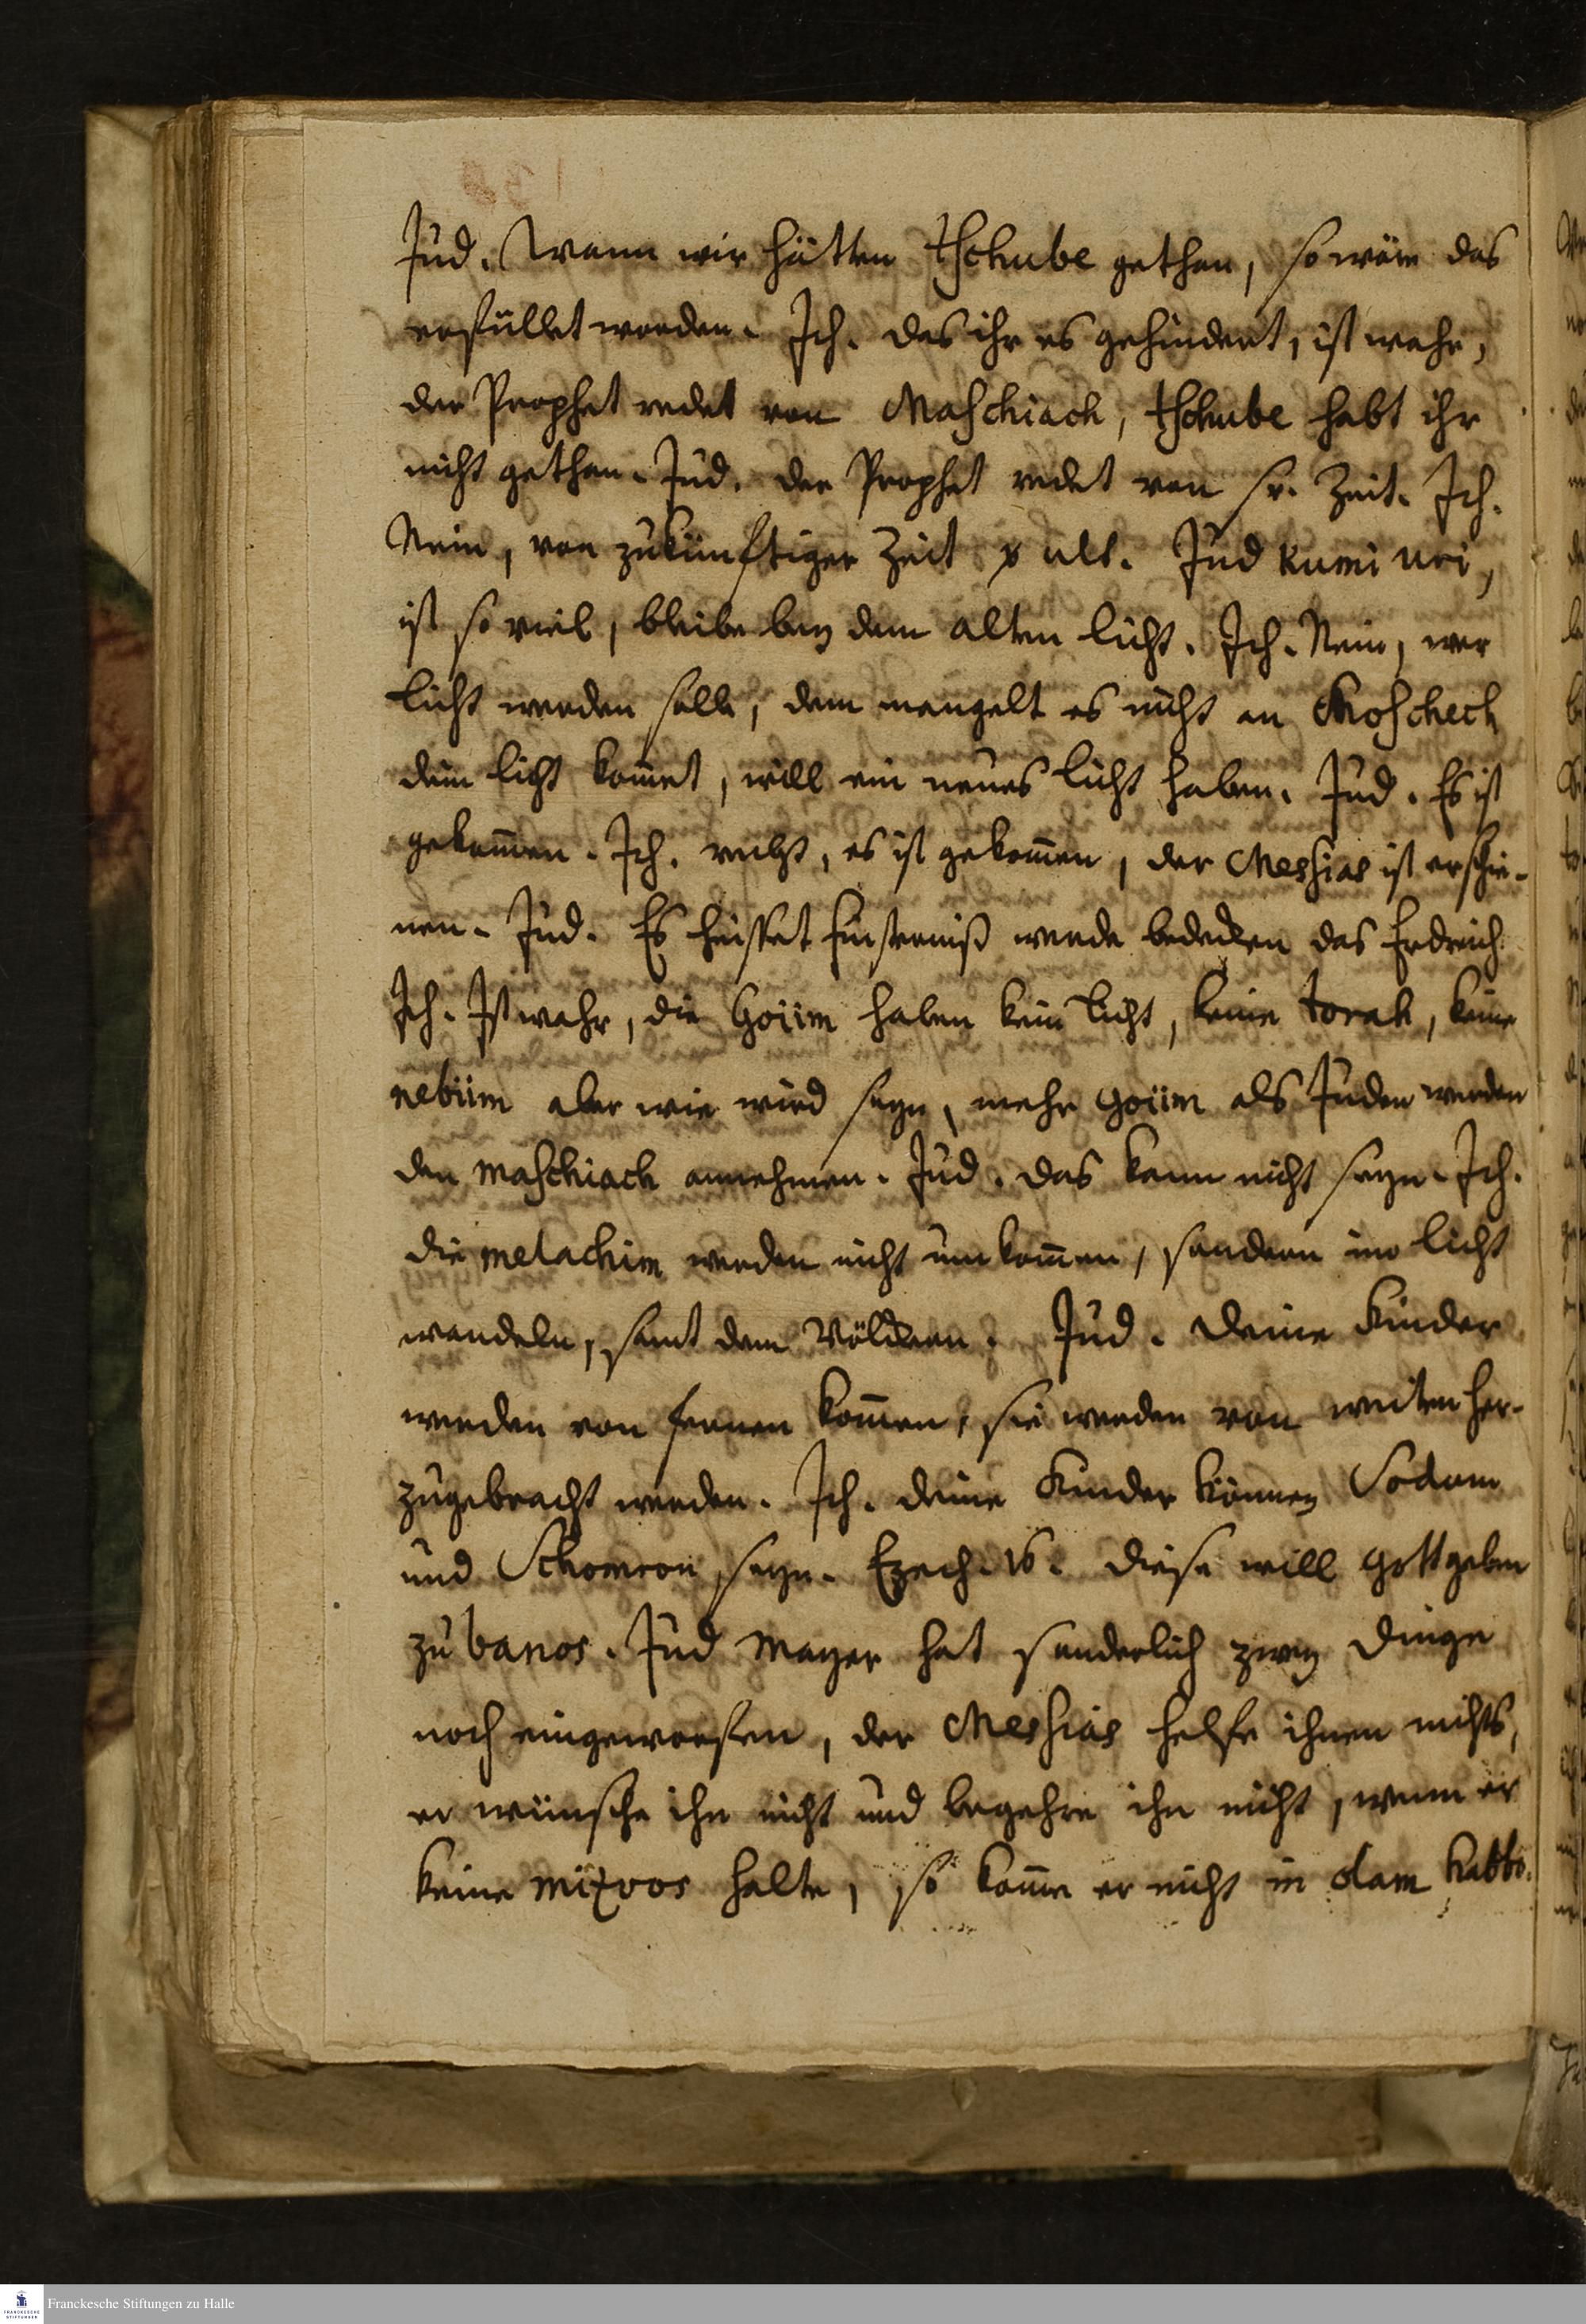 Jud. Wann wir hätten tschube gethan, so wäre das
erfüllet worden. Ich. das ihr es gehindert, ist wahr,
der Prophet redet von Maschiach, tschube habt ihr
nicht gethan. Jud. der Prophet redet von sr. Zeit. Ich.
Nein, von zukünftiger Zeit ult. Jud kumi uri,
ist so viel, bleibe bey dem alten licht. Ich. Nein, wer
licht werden solle, dem mangelt es nicht an Choschech
dein licht kom̄et, will ein neues licht haben. Jud. Es ist
gekom̄en. Ich. recht, es ist gekom̄en, der Messias ist erschie-
nen. Jud. Es heisset Finsterniß werde bedecken das Erdreich
Ich. Ist wahr, die Goiim haben kein licht, keine torah, keine
nebiim aber wie wird seyn, mehr Goiim als Juden werden
den Maschiach annehmen. Jud. das kann nicht seyn. Ich.
die melachim werden nicht umkom̄en, sondern im licht
wandeln, samt dem Völckern. Jud. deine Kinder
werden von fernen kom̄en, sie werden von weiten her-
zugebracht werden. Ich. deine Kinder können Sodom
und Schomron seyn. Ezech. 16. diese will Gott geben
zu banos. Jud Mayer hat sonderlich zwey Dinge
noch eingeworfen, der Messias helfe ihnen nichts,
er wünsche ihn nicht und begehre ihn nicht, wenn er
keine mizvos halte, so kom̄e er nicht in olam habbo.
Franckesche Stiftungen zu Halle